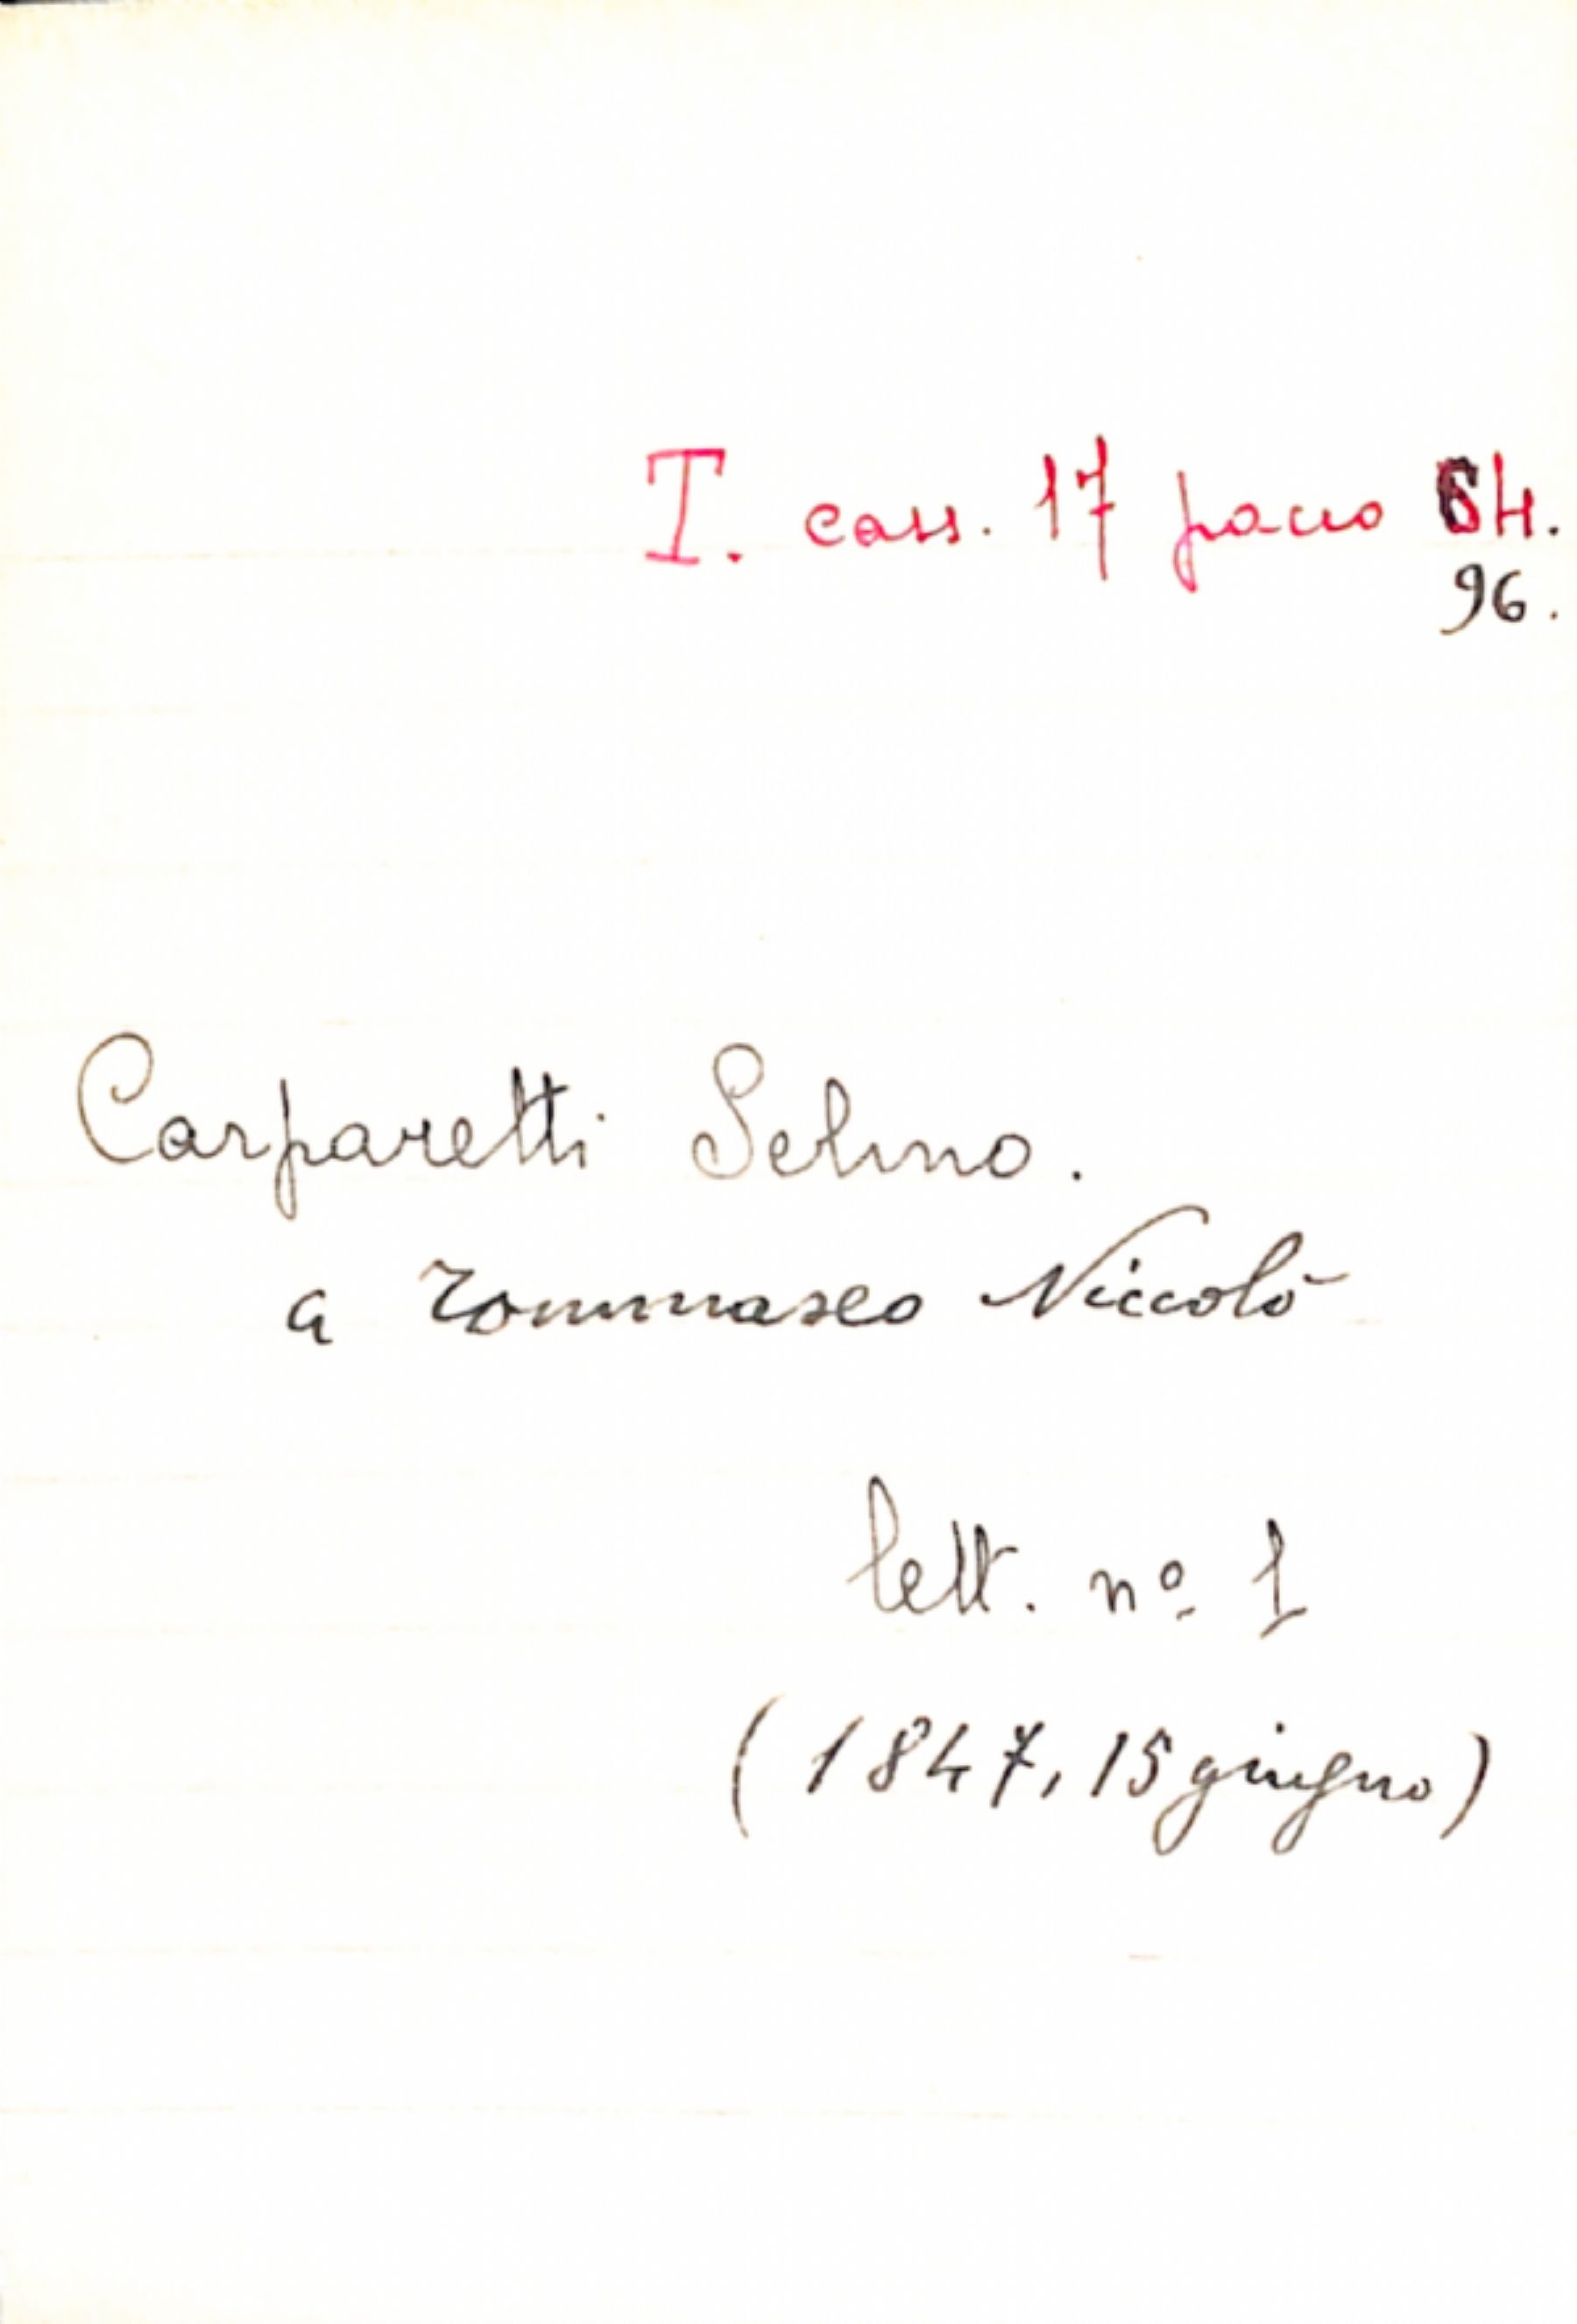 T. cass. 17 pacco 64.
96.
Carparetti Selino.
a Tommaseo Niccolò
lett. nº 1
(1847, 15 giugno)